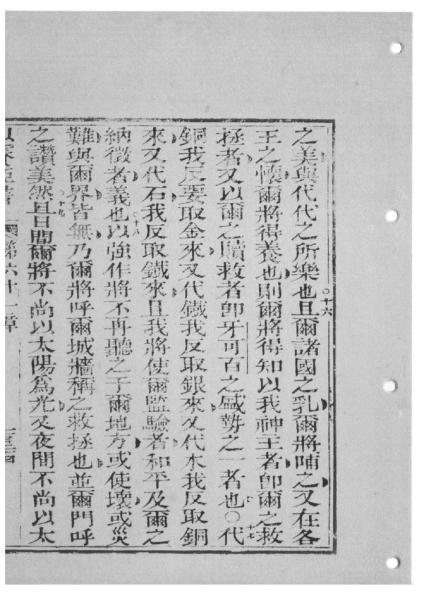 之美與代代之所樂也且爾諸國之乳爾將哺之又在各
王之懷爾將得養也則爾將得知以我神王者卽爾之救
拯者又以爾之贖救者卽牙可百之威勢之一者也○代
銅我反要取金來又代鐵我反取銀來又代木我反取銅
來又代石我反取鐵來且我將使爾監驗者和平及爾之
納徵者義也以強作將不再聽之于爾地方或使壞或災
難與爾界皆無乃爾將呼爾城牆稱之救拯也並爾門呼
之讚美然且日間爾將不尚以太陽爲光又夜間不尚以太
第六十章
十六
十七
十八
十九